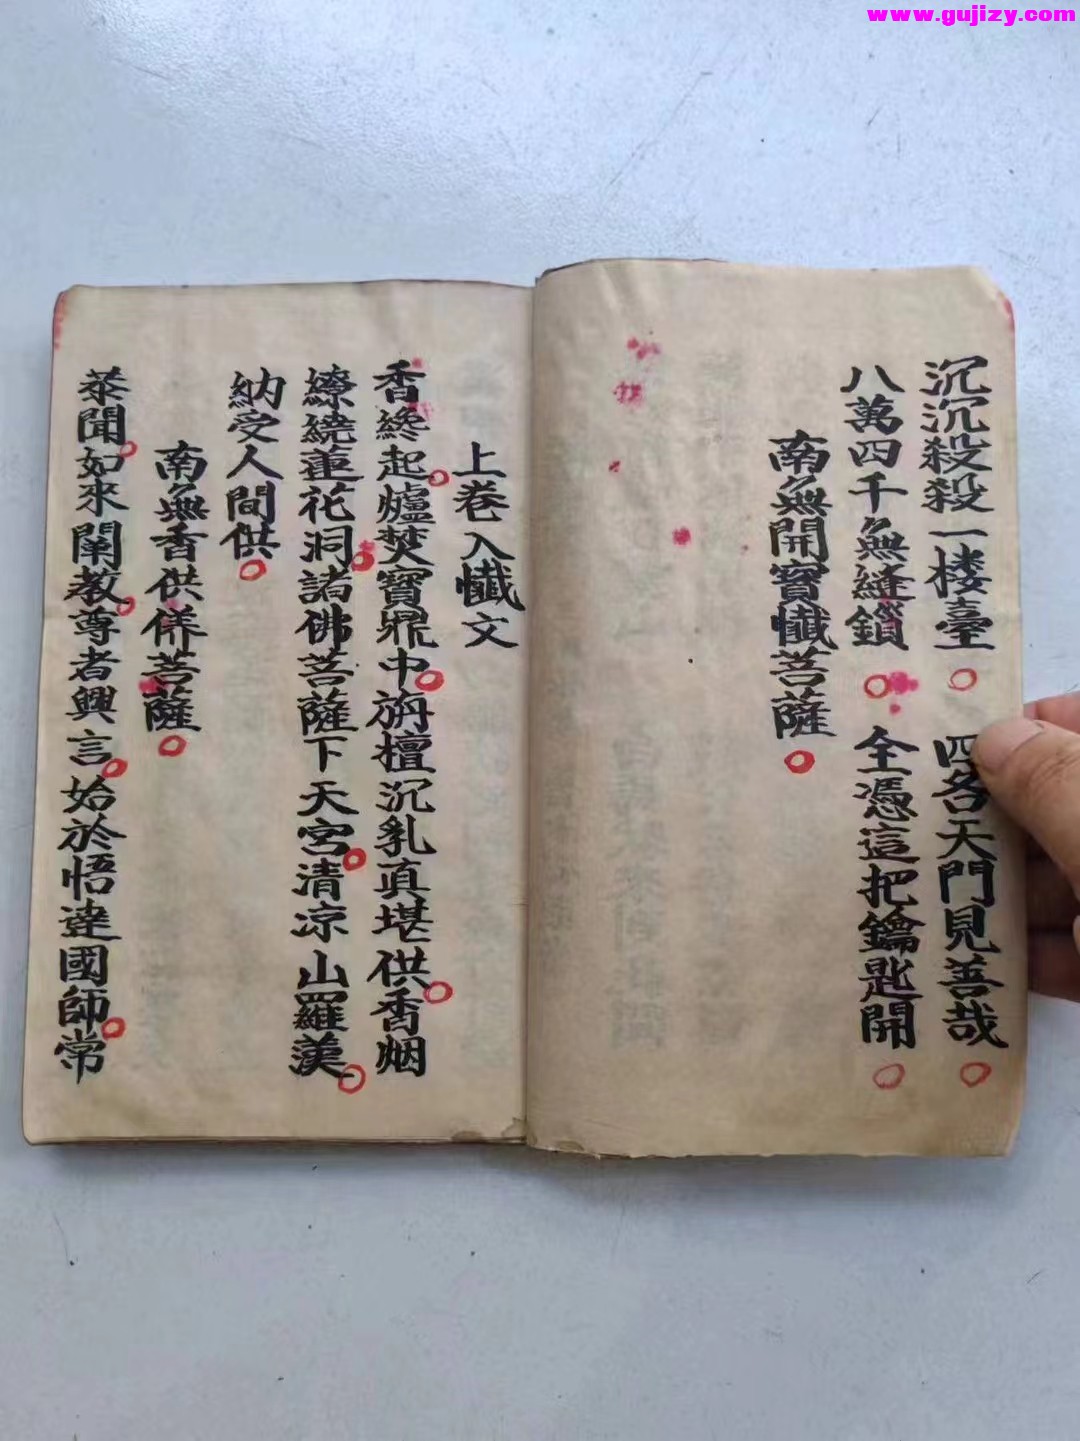 www.gujizy.com
沉沉殺殺一楼臺 四各天門見善哉
八萬四千無縫鎖 全憑這把鑰匙開
南無開寶懺菩薩
上卷入懺文
香纔起爐焚寶鼎中旃檀沉乳真堪供香烟
繚繞蓮花洞諸佛菩薩下天宮清凉山羅漢
納受人間供
南無香供養菩薩
恭聞如來闡教尊者興言始於悟達國師常